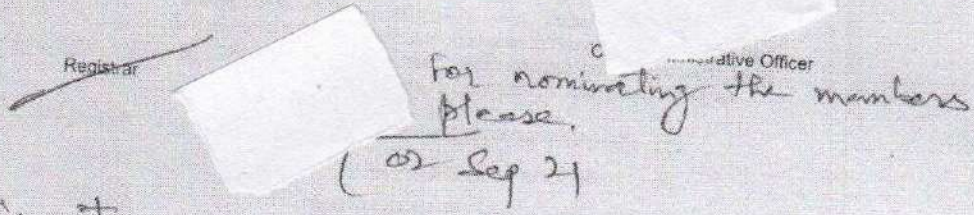 Registrar
ative Officer
For nominating the members
please.
( 02 Sep 21